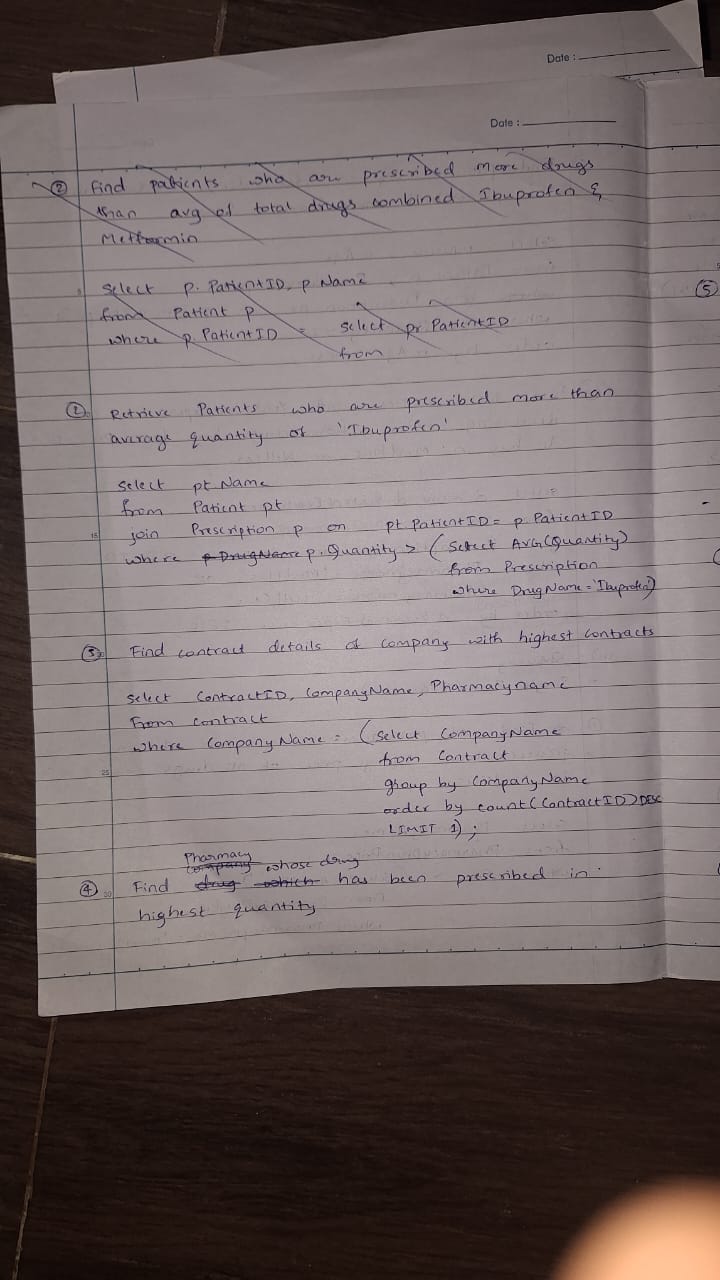 Date :
Date :
② Find patients who are prescribed more drugs
than avg of total drugs combined Ibuprofen &
Metformin
Select p. PatientID, p Name
from Patient p
where p PatientID = Select pr PatientID
from
② Retrieve Patients who are prescribed more than
average quantity of 'Ibuprofen'
Select pt Name
from Patient pt
join Prescription p on pt PatientID = p PatientID
15
where p DrugName p. Quantity > (Select AVG(Quantity)
from Prescription
where DrugName = 'Ibuprofen')
③ Find contract details of company with highest contracts
Select ContractID, CompanyName, Pharmacyname
From contract
where CompanyName = (select CompanyName
from Contract
25
group by CompanyName
order by count(ContractID) DESC
LIMIT 1) ;
Pharmacy
company whose drug
④ Find drug which has been prescribed in
30
highest quantity
⑤